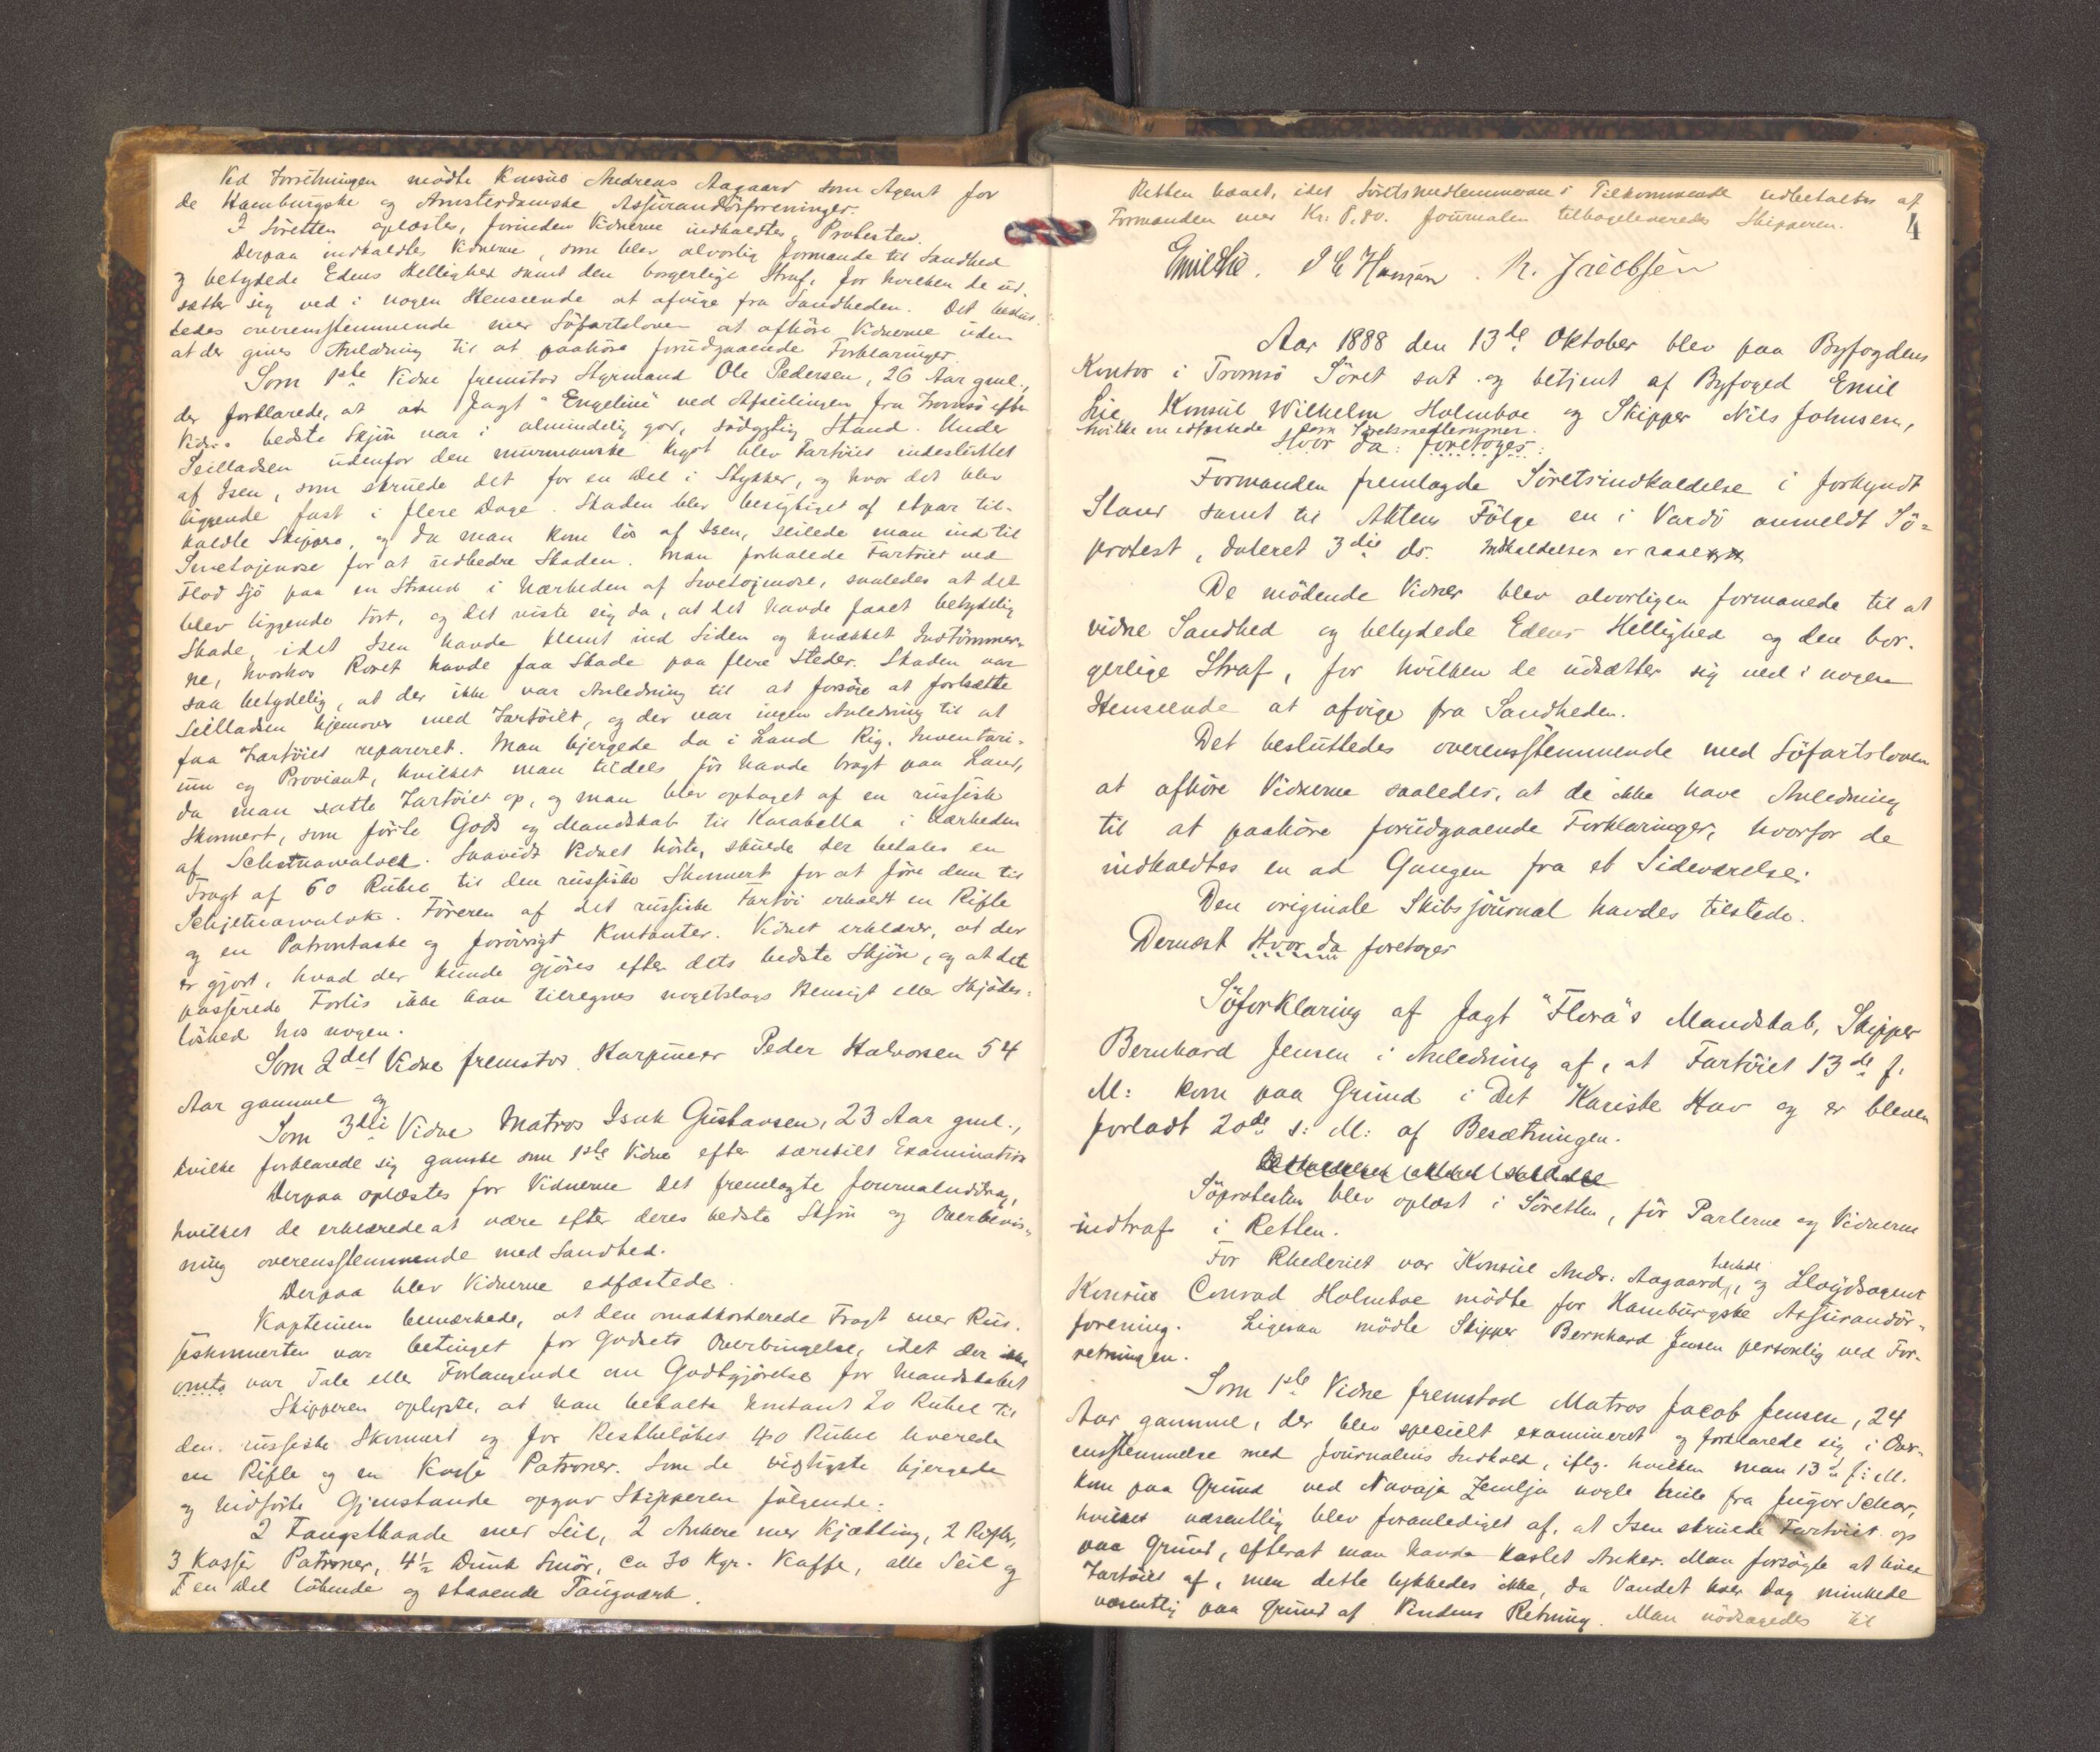 Ved Forretningen mödte Konsul Andreas Aagaard som Agent for
de Hamburgske og Amsterdamske Assürandörforeninger.
I Söretten oplæstes, forinden Vidnerne indkaldtes, Protesten.
Derpaa indkaldtes Vidnerne, som blev alvorlig formanede til Sandhed
og betydede Edens Hellighed samt den borgerlige Straf, for hvilken de üd-
sætter sig ved i nogen Henseende at afvige fra Sandheden. Det beslut-
tedes overensstemmende med Söfartsloven at afhöre Vidnerne üden
at der gives Anledning til at paahöre forüdgaaende Forklaringer.
Som 1ste Vidne fremstod Styrmand Ole Pedersen, 26 Aar gml.,
der forklarede, at Jagt "Engeline" ved Afseilingen fra Tromsö efter
Vidnes bedste Skjön var i almindelig god, södygtig Stand. Under
Seilladsen üdenfor den murmanske Kyst blev Fartöiet indesluttet
af Isen, som skruede det for en Del i Stykker, og hvor det blev
liggende fast i flere Dage. Skaden blev besigtiget af etpar til-
kaldte Skippere, og da man kom lös af Isen, seilede man ind til
for at üdbedre Skaden. Man forhalede Fartöiet ved
Flod Sjö paa en Strand i Nærheden af saaledes at det
blev liggende tört, og det viste sig da, at det havde faaet betydelig
Skade, idet Isen havde klemt ind Siden og knækket Indtömmer-
ne, hvorhos Roret havde faa Skade paa flere Steder. Skaden var
saa betydelig, at der ikke var Anledning til at forsöge at fortsætte
Seilladsen hjemover med Fartöiet, og der var ingen Anledning til at
faa Fartöiet repareret. Man bjergede da i Land Rig, Inventari-
üm og Proviant, hvilket man tildels för havde bragt paa Land,
da man satte Fartöiet op, og man blev optaget af en rüssisk
Skonnert, som förte Gods og Mandskab til Karabella i Nærheden
af Saavidt Vidnet hörte, skulde der betales en
Fragt af 60 Rubel til den rüssiske Skonnert for at före dem til
Föreren af det rüssiske Fartöi erholdt en Rifle
og en Patrontaske og forövrigt Kontanter. Vidnet erklærer, at der
er gjort, hvad der kunde gjöres efter dets bedste Skjön, og at det
passerede Forlis ikke kan tilregnes nogetslags Hensigt eller Skjödes-
löshed hos nogen.
Som 2det Vidne fremstod Harpuner Peder Halvorsen 54
Aar gammel og
Som 3die Vidne Matros Isak Gustavsen, 23 Aar gml.,
hvilke forklarede sig ganske som 1ste Vidne efter særskilt Examination
Derpaa oplæstes for Vidnerne det fremlagte Journaluddrag,
hvilket de erklærede at være efter deres bedste Skjön og Overbevis-
ning overensstemmende med Sandhed.
Derpaa blev Vidnerne edfæstede.
Kapteinen bemærkede, at den omakkorderede Fragt med Rus-
seskonnerten var betinget for Godsets Overbringelse, idet der ikke
var Tale eller Forlangende om Godtgjörelse for Mandskabet
Skipperen oplyste, at han betalte kontant 20 Rubel til
den russiske Skonnert og for Restbelöbet 40 Rubel leverede
en Rifle og en Kasse Patroner. Som de vigtigste bjergede
og hidförte Gjenstande opgav Skipperen fölgende:
2 Fangstbaade med Seil, 2 Ankere med Kjætting, 2 Rifler,
3 Kasser Patroner, 4½ Dunk Smör, ca 30 Kgr. Kaffe, alle Seil og
en Del löbende og staaende Taugværk.
Retten hævet, idet Söretsmedlemmernes Tilkommende udbetaltes af
Formanden med Kr: Journalen tilbageleveredes Skipperen.
4
Emil Lie. I E Hansen. N. Jacobsen
Aar 1888 den 13de Oktober blev paa Byfogdens
Kontor i Tromsö Söret sat og betjent af Byfoged Emil
Lie, Konsul Wilhelm Holmboe og Skipper Nils Johnsen,
hvilke ere edfæstede som Söretsmedlemmer.
Hvor da: foretoges:
Formanden fremlagde Söretsindkaldelse i forkyndt
Stand samt til Aktens Fölge en i Vardö anmeldt Sö-
protest, dateret 3die ds. Indkaldelsen er saal.
De mödende Vidner blev alvorligen formanede til at
vidne Sandhed og betydede Edens Hellighed og den bor-
gerlige Straf, for hvilken de üdsætter sig ved i nogen
Henseende at afvige fra Sandheden.
Det beslüttedes overensstemmende med Söfartsloven
at afhöre Vidnerne saaledes, at de ikke have Anledning
til at paahöre forüdgaaende Forklaringer, hvorfor de
indkaldtes en ad Gangen fra et Sideværelse.
Den originale Skibsjournal havdes tilstede.
Dernæst Hvor da foretoges
Söforklaring af Jagt "Flora"s Mandskab, Skipper
Bernhard Jensen i Anledning af, at Fartöiet 13de f.
M: kom paa Grund i Det Kariske Hav og er bleven
forladt 20de s: M: af Besætningen.
Söprotesten blev oplæst i Söretten, för Parterne og Vidnerne
indtraf i Retten.
For Rhederiet var Konsul Andr: Aagaard tilstede, og Lloydsagent
Konsul Conrad Holmboe mödte for Hamburgske Assurandör-
forening. Ligesaa mödte Skipper Bernhard Jensen personlig ved For-
retningen.
Som 1ste Vidne fremstod Matros Jacob Jensen, 24
Aar gammel, der blev specielt examineret og forklarede sig i Over-
ensstemmelse med Journalens Indhold, iflg. hvilken man 13de f: M.
kom paa Grund ved Novaja Zemlja nogle Mile fra Jugor Schar,
hvilket væsentlig blev foranlediget af, at Isen skruede Fartöiet op
paa Grund, efterat man havde kastet Anker. Man forsögte at hive
Fartöiet af, men dette lykkedes ikke, da Vandet hver Dag minkede
væsentlig paa Grund af Vindens Retning. Man nödsagedes til